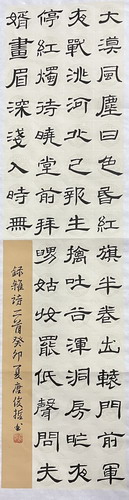 大漠風塵日色昏紅旗半卷出轅門前軍
夜戰洮河北已報生擒吐谷渾洞房昨夜
停紅燭待曉堂前拜舅姑妝罷低聲問夫
婿畫眉深淺入時
錄雜詩二首癸卯夏唐俊哲書